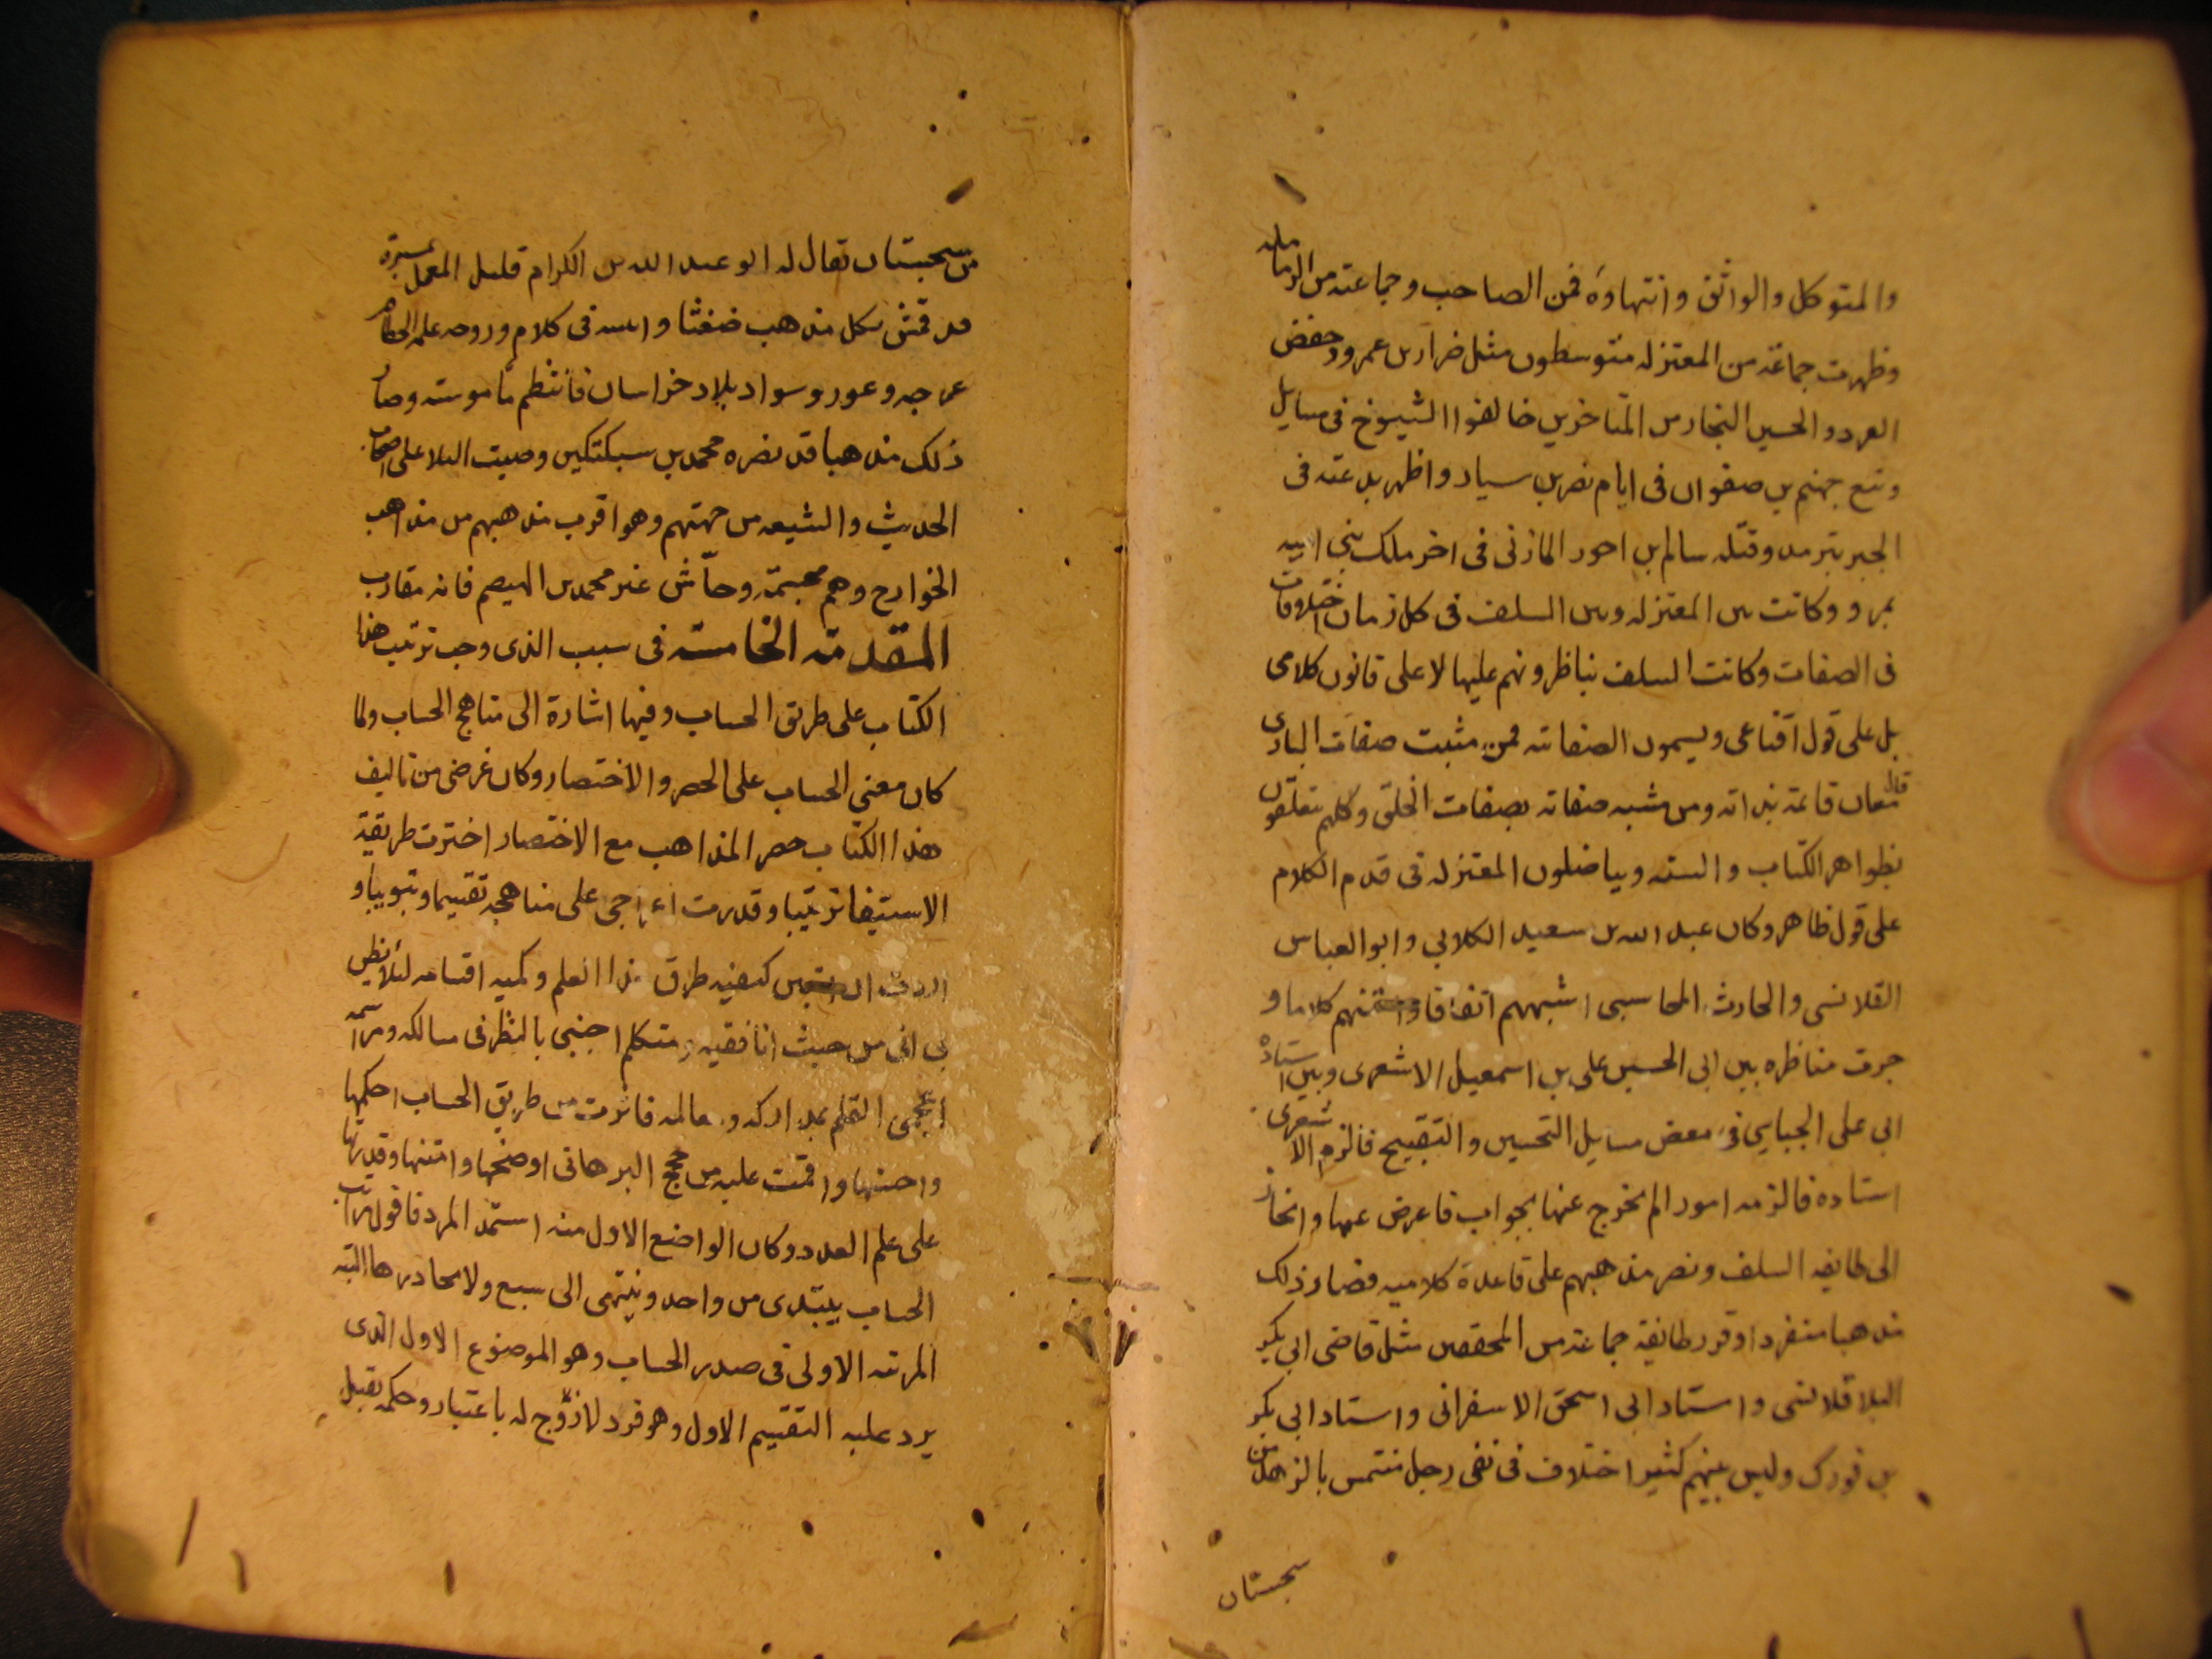 والمتوكل والواثق وانتهاوه فمن الصاحب وجماعته من الزمامله
وظهرت جماعة من المعتزله متوسطون مثل ضرار بن عمرو وحفض
الفرد والحسين النجار من المتاخرين خالفوا الشيوخ فى مسايل
ونبع جهنم بن صفوان فى ايام نصر بن سيار واظهر بدعته فى
الجبر بترمد وقتله سالم بن احور المازنى فى اخر ملك بنى اميه
بمرو وكانت بين المعتزله وبين السلف فى كل زمان اختلافات
فى الصفات وكانت السلف يناظرونهم عليها لا على قانون كلامى
بل على قول اقناعى ويسمون الصفاتته فمن مثبت صفات البارى
تعالى معان قائمة بذاته ومن مشبه صفاته بصفات الخلق وكلهم يتعلقون
بظواهر الكتاب والسنه ويناضلون المعتزله فى قدم الكلام
على قول ظاهر وكان عبد الله بن سعيد الكلابى وابو العباس
القلانسى والحارث المحاسبى اشبههم اتفاقا وامتنهم كلاما و
جرت مناظره بين ابى الحسين على بن اسمعيل الاشعرى وبين استاذه
ابى على الجبايى فى بعض مسايل التحسين والتقبيح فالزم الاشعرى
استاده فالزمه امورا لم يخرج عنها بجواب فاعرض عنها وانحاز
الى طايفه السلف ونصر مذهبهم على قاعدة كلاميه فضار ذلك
مذهبا منفردا وقرر طايفة جماعة من المحققين مثل قاضى ابى بكر
البلاقلانسى واستاد ابى اسحق الاسفرانى واستاد ابى بكر
بن فورك وليس بينهم كثير اختلاف فى نفى رجل منتمس بالزهد من
سجستان
من سجستان تقال له ابو عبد الله بن الكرام قليل المعمل
قد قمش بكل مذهب ضغثا واثبته فى كلام وروجه على
غرجه وغور وسواد بلاد خراسان فانتظم ناموسته وصار
ذلك مذهبا قد نصره محمد بن سبكتكين وصبت البلا على اصحاب
الحديث والشيعه من جهتهم وهو اقرب مذهبهم من مذاهب
الخوارج وهم مجسمة وحاش غير محمد بن الهيصم فانه مقارب
المقدمة الخامسة فى سبب الذى وجب ترتيب هذا
الكتاب على طريق الحساب وفيها اشارة الى مناهج الحساب ولما
كان معنى الحساب على الحصر والاختصار وكان غرضى من تاليف
هذا الكتاب حصر المذاهب مع الاختصار اخترت طريقة
الاستيفا ترتيبا وقدرت اغراضى على مناهجه تقسيما وتبويبا و
اردت ان ابين كيفيه طرق هذا العلم وكميه اقسامه لئلا يظن
بى انى من حيث انا فقيه ومتكلم اجنبى بالنظر فى مسالكه ومراسمه
اعجمى القلم بمداركه ومعالمه فاثرت من طريق الحساب احكمها
واحسنها واقمت عليه من حجج البرهانى اوضحها وامتنها وقدرتها
على علم العدد وكان الواضع الاول منه استمد المرد فاقول مراتب
الحساب يبتدى من واحد وينتهى الى سبع ولا يجاوزها البته
المرتبه الاولى فى صدر الحساب وهو الموضوع الاول الذى
يرد عليه التقسيم الاول وهو فرد لا زوج له باعتبار وحكمه يقبل